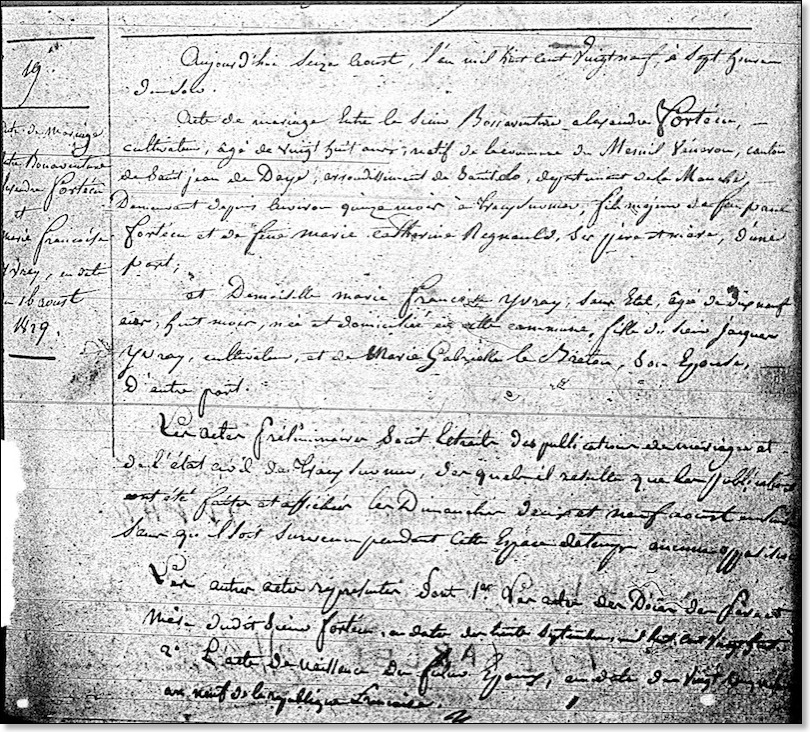 19.
Acte de Mariage
entre Bonaventure
alexandre fortécu
et
marie francoise
yvray, en date
du 16 aoust
1829.
Aujourd'hui seize aoust, l'an mil huit cent vingt neuf, à sept heures
du soir.
Acte de mariage Entre le sieur Bonnaventure alexandre Fortécu,
cultivateur, âgé de vingt huit ans, natif de la commune du Mesnil Veneron, canton
de Saint jean de Daye, arrondissement de Saint Lo, département de la Manche,
Demeurant depuis environ quinze mois à tracy sur mer, fils majeur de feu paul
fortécu et de feue marie catherine Regnauld, ses père et mère, d'une
part;
et Demoiselle marie francoise yvray, sans Etat, âgé de dix neuf
ans, huit mois, née et domiciliée en cette commune, fille du sieur jacques
yvray, cultivateur, et de Marie Gabrielle le Breton, son Epouse,
d'autre part.
Les actes préliminaires sont Extraits des publications de mariages et
de l'état civil de tracy sur mer, desquels il resulte que les publications
ont été faites et affichées les Dimanches deux et neuf aoust
sans qu'il soit survenu pendant cette Espace de temps aucune opposition
Les autres actes representés sont 1er Les actes des Décès des père et
mère dudit sieur fortécu, en dates des trente Septembre mil huit cent vingt huit.
2° L'acte de naissance du futur Epoux, en date du vingt
an neuf de la republique francaise.